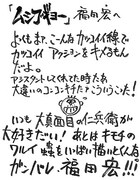 「ムシブギョー」福田宏へ
よくもまァこんなカッコイイ線で
カッコイイアクションをキメるもん
だよ。
アシスタントしてくれてた時たァ
大違いのコンコンキチめ!こういこい!
いつも大真面目の仁兵衛が
大好きだい!あとはキモチの
ワルイ蟲をいっぱい描いとくんな
ガンバレ福田宏!!!